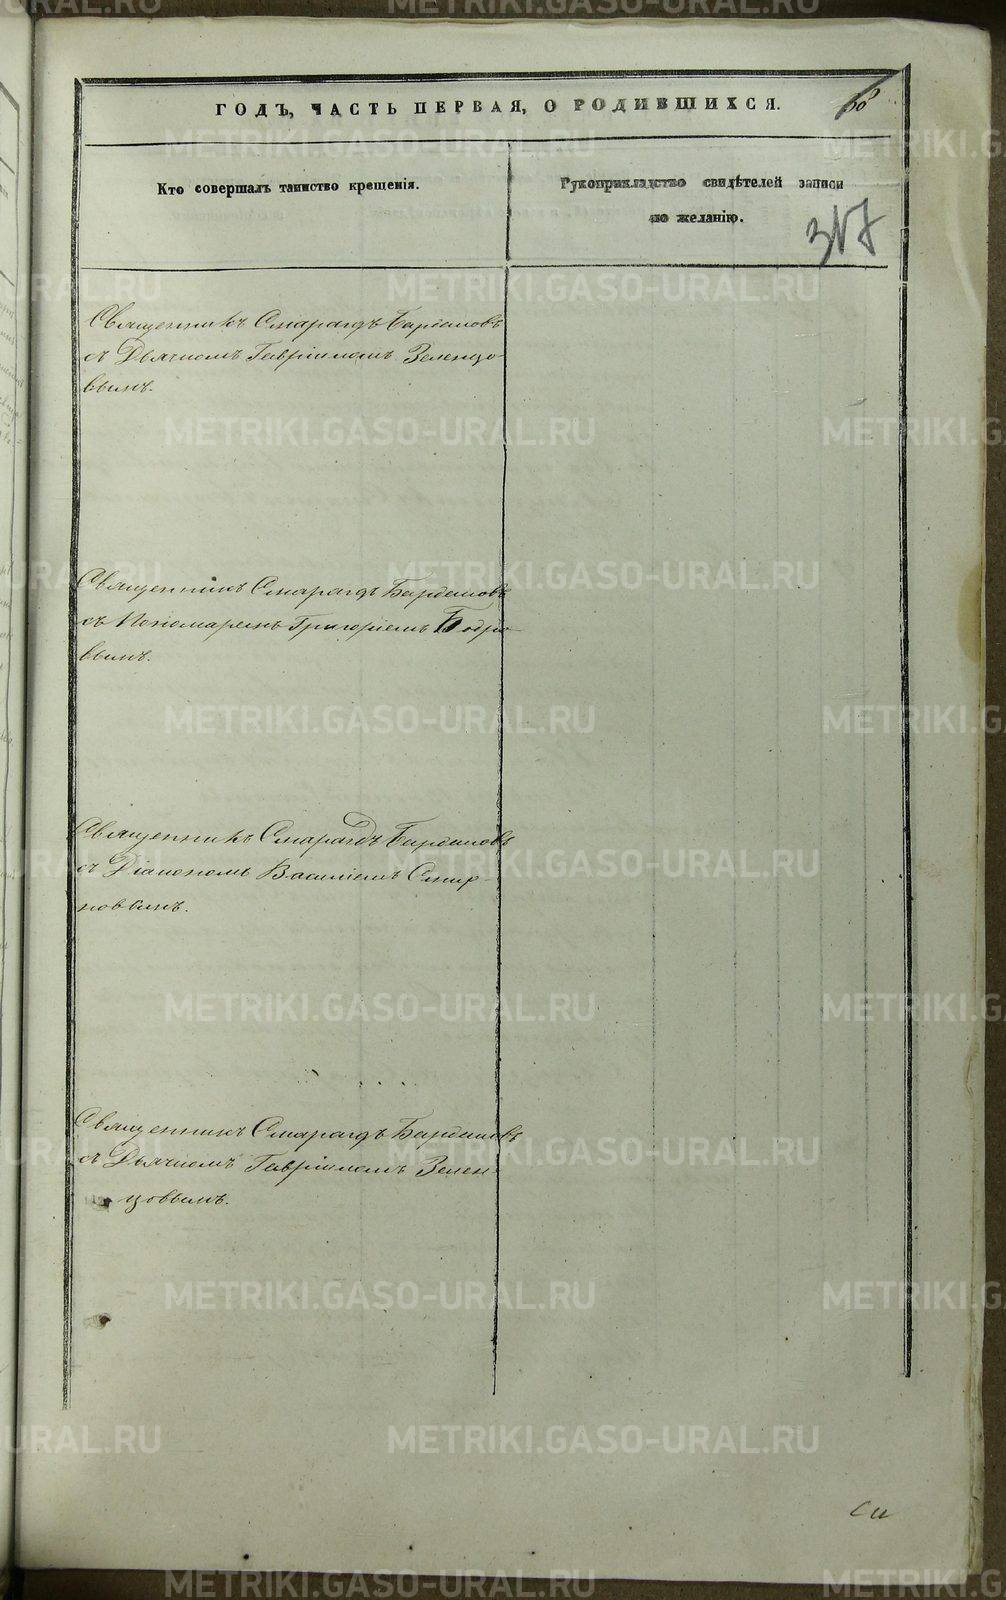 ГОДЪ, ЧАСТЬ ПЕРВАЯ, О РОДИВШИХСЯ.
Кто совершалъ таинство крещенія.
Рукоприкладство свидѣтелей записи
по желанію.
317
Священникъ Смарагдъ Бирюковъ
съ Дьячкомъ Гавріиломъ Зеленцо-
вымъ.
Священникъ Смарагдъ
съ Пономаремъ Григоріемъ
вымъ.
Священникъ Смарагдъ
съ Діакономъ Василіемъ Смир-
новымъ.
Священникъ Смарагдъ
съ Дьячкомъ Гавріиломъ Зелен-
цовымъ.
METRIKI.GASO-URAL.RU